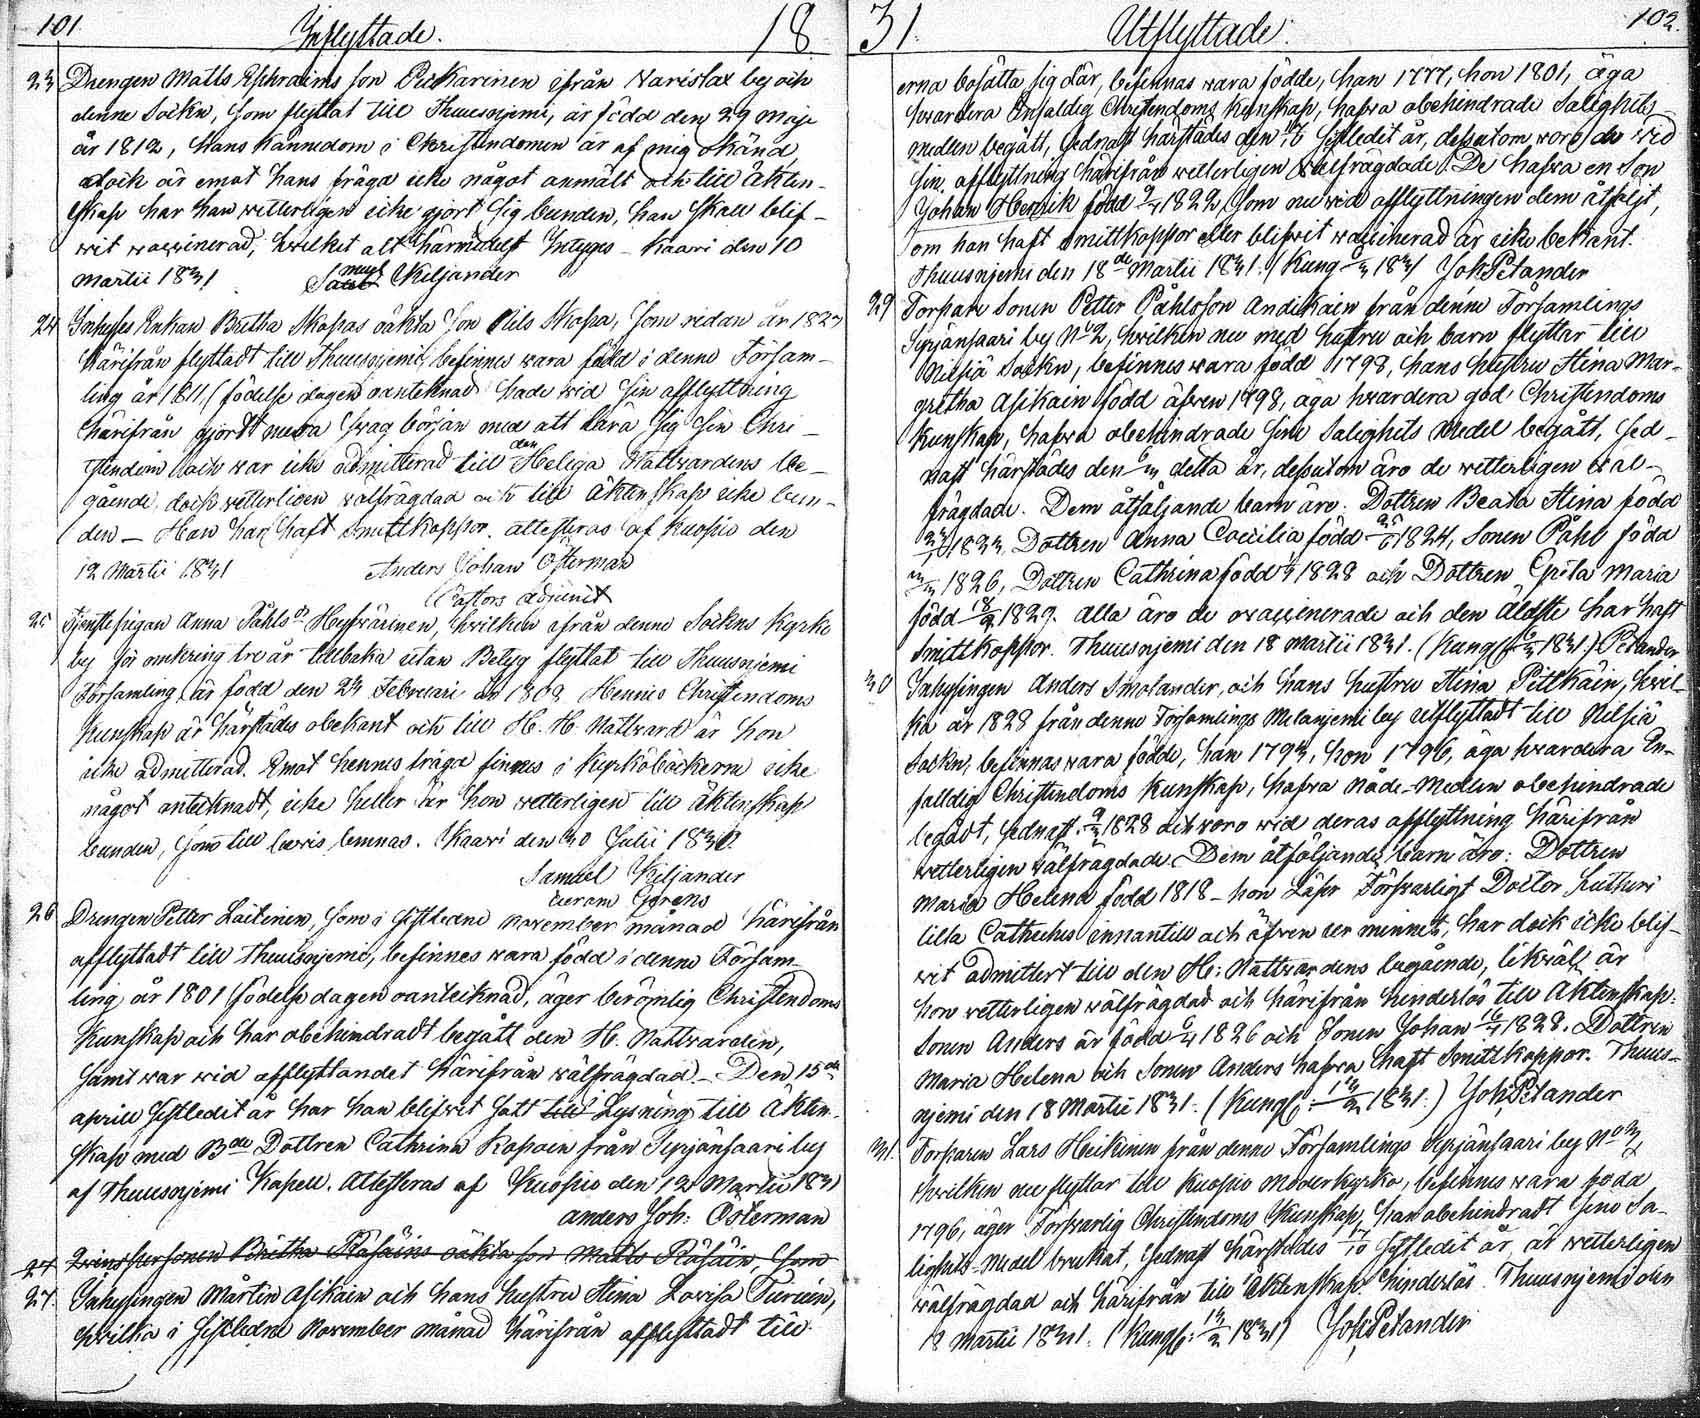 101
Inflyttade.
18
23 Drengen Matts Ephraims son Pitkarinen ifrån Varislax by och
denne Sockn, som flyttat till Thuusnjemi, är född den 29 Maji
år 1812, hans kännedom i Christendomen är af mig okänd,
dock är emot hans frägd icke något anmält och till Äkten-
skap har han wetterligen icke gjort sig bunden, han skall blif-
wit waccinerad, hwilket alt härmedelst Intygas – Kaavi den 10
Martii 1831 Samuel Kiljander
24 Inhyses Enkan Britha Skopas oäkta son Nils Skopa, som redan år 1827
härifrån flyttadt till Thuusnjemi, befinnes wara född i denne Försam-
ling år 1811, (födelse dagen oanteknad) hade wid sin afflyttning
härifrån gjordt swag början med att lära sig sin Chri-
stendom och war icke admitterad till den Heliga Nattwardens be-
gående, dock wetterligen wälfrägdad och till Äktenskap icke bun-
den – Han har haft Smittkoppor. attesteras af Kuopio den
12 Martii 1831 Anders Johan Österman
Pastors adjunct
25 Tjenstepigan Anna Påhls dr Hyfwärinen, hwilken ifrån denne Sockns Kyrko
by för omkring tre år tillbaka utan Betyg flyttat till Thuusnjemi
Församling, är född den 23 Februari år 1802 Hennes Christendoms
kunskap är härstädes obekant och till H. H. Nattward är hon
icke admitterad. Emot hennes frägd finnes i Kyrkoböckerne icke
något antecknadt, icke heller är hon wetterligen till Äktenskap
bunden, som till bewis lemnas. Kaavi den 30 Julii 1830
Samuel Kiljander
26 Drengen Petter Laitinen, som i sistledne November månad härifrån
afflyttadt till Thuusnjemi, befinnes wara född i denne Försam-
ling år 1801 (födelse dagen oanteiknad, äger berömlig Christendoms
kunskap och har obehindradt begått den H. Nattwarden,
samt war wid afflyttandet härifrån wälfrägdad. – Den 15de
aprill sistledit år har han blifwit satt till Lysning till Äkten-
skap med Bde Dottren Cathrina Kapain från Syrjänsaari by
af Thuusnjemi Kapell. Attesteras af Kuopio den 12 Martii 1831
Anders Joh: Österman
27 Qwinspersonen Britha Räsäins oäkta son Matts Räsäin, som
27. Inhysingen Mårtin Asikain och hans hustru Stina Lovisa
hwilka i sistledne November månad härifrån afflyttadt till
31.
Utflyttade.
102.
erna bosätta sig där, befinnas wara födde, han 1777, hon 1801, äga
hwardera Enfaldig Christendoms kunskap, hafwa obehindrade Salighets-
medlen begått, sednast härstädes den sistledit år, dessutom woro de wid
sin afflyttning härifrån wetterligen wälfrägdade. De hafwa en Son
Johan Henrik född 1822, som nu wid afflyttningen dem åtföljt,
om han haft Smittkoppor eller blifwit waccinerad är icke bekant.
Thuusnjemi den 18de Martii 1831. (Kung 1831) Joh: Petander
29 Torpare Sonen Petter Påhlsson Andikain från denne Församlings
Syrjänsaari by No 2, hwilken nu med hustru och barn flyttar till
Nilsiä Sockn, befinnes wara född 1798, hans hustru Stina Mar-
gretha Asikain född äfwen 1798, äga hwardera god Christendoms
kunskap, hafwa obehindrade sine Salighets medel begått, sed-
nast härstädes den detta år, dessutom äro de wetterligen wäl-
frägdade. Dem åtföljande barn äro: Dottren Beata Stina född
1822, Dottren Anna Caecilia född 1824, Sonen Påhl född
1826, Dottren Cathrina född 1828 och Dottren Greta Maria
född 1829. alla äro de waccinerade och den Äldste har haft
Smittkoppor. Thuusnjemi den 18 Martii 1831. (Kungs 1831.) Petander
30 Inhysingen Anders Smolander, och hans hustru Stina Pitkäin, hwil-
ka år 1828 från denne Församlings Melanjemi by utflyttadt till Nilsiä
Sockn, befinnas wara födde, han 1793, hon 1796, äga hwardera En-
faldig Christendoms kunskap, hafwa Nåde-Medlen obehindrade
begådt, sednast 1828 och woro wid deras afflyttning härifrån
wetterligen wälfrägdade. Dem åtföljande barn äro: Dottren
Maria Helena född 1818 – hon Läser Förswarligt Doctor Lutheri
lilla Cathechis innantill och äfwen ur minnet, har dock icke blif-
wit admittert till den H: Nattwardens begående, likwäl är
hon wetterligen wälfrägdad och härifrån hinderlös till Äktenskap.
Sonen Anders är född 1826 och Sonen Johan 1828. Dottren
Maria Helena och Sonen Anders hafwa haft Smittkoppor. Thuus-
njemi den 18 Martii 1831. (Kungs: 1831.) Joh: Petander
31. Torparen Lars Heikinen från denne Församlings Syrjänsaari by No 3,
hwilken nu flyttar till Kuopio Moderkyrka, befinnes wara född
1796, äger Förswarlig Christendoms Kunskap, har obehindradt sine Sa-
lighets-Medel brukat, sednast härstädes sistledit år, är wetterligen
wälfrägdad och härifrån till Äktenskap hinderlös. Thuusnjemi den
18 Martii 1831. (Kungs: 1831) Joh: Petander